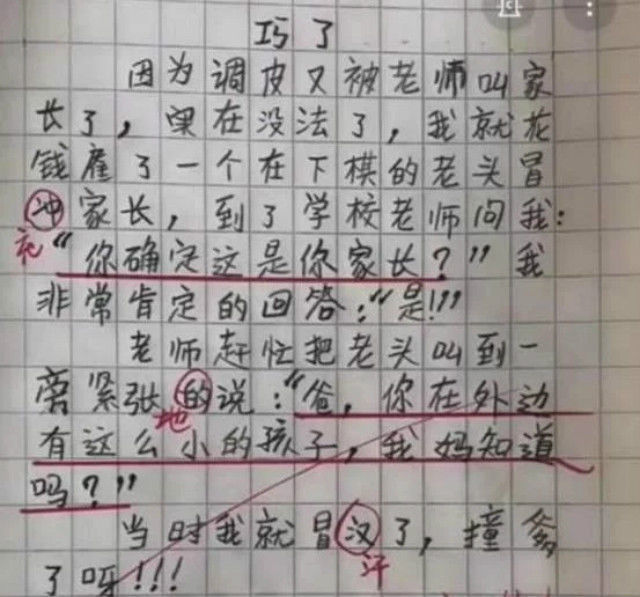 巧了
因为调皮又被老师叫家
长了，实在没法了，我就花
钱雇了一个在下棋的老头冒
冲家长，到了学校老师问我：
充
“你确定这是你家长？”我
非常肯定的回答：“是!!!
老师赶忙把老头叫到一
旁紧张的说：“爸，你在外边
地
有这么小的孩子，我妈知道
吗？”
当时我就冒汉了，撞爹
汗
了呀!!!